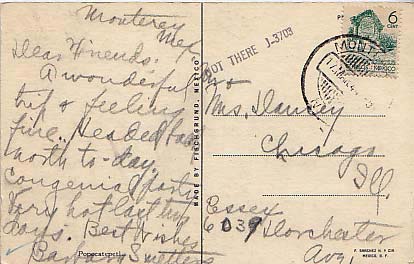 Monterey
Mex
Dear Friends.
A wonderful
trip & feeling
fine. Headed
north to-day.
Congenial party
Very hot last two
days. Best Wishes
Barbara
Popocatepetl
MADE BY FISCHGRUND, MEXICO
NOT THERE J-3703
6
MEXICO
MONT
Ms.
Chicago
Ill.
Essex
6039 Dorchester
Ave
MEXICO, D. F.